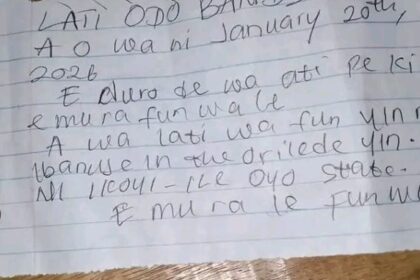 LATI ODO BAN
A O wa ni January 20th,
2026
E duro de wa ati pe ki
e mura fun wa le
A wa lati wa fun yin
in the orilede yin.
NI IKOYI-ILE OYO State.
E mu ra le fun